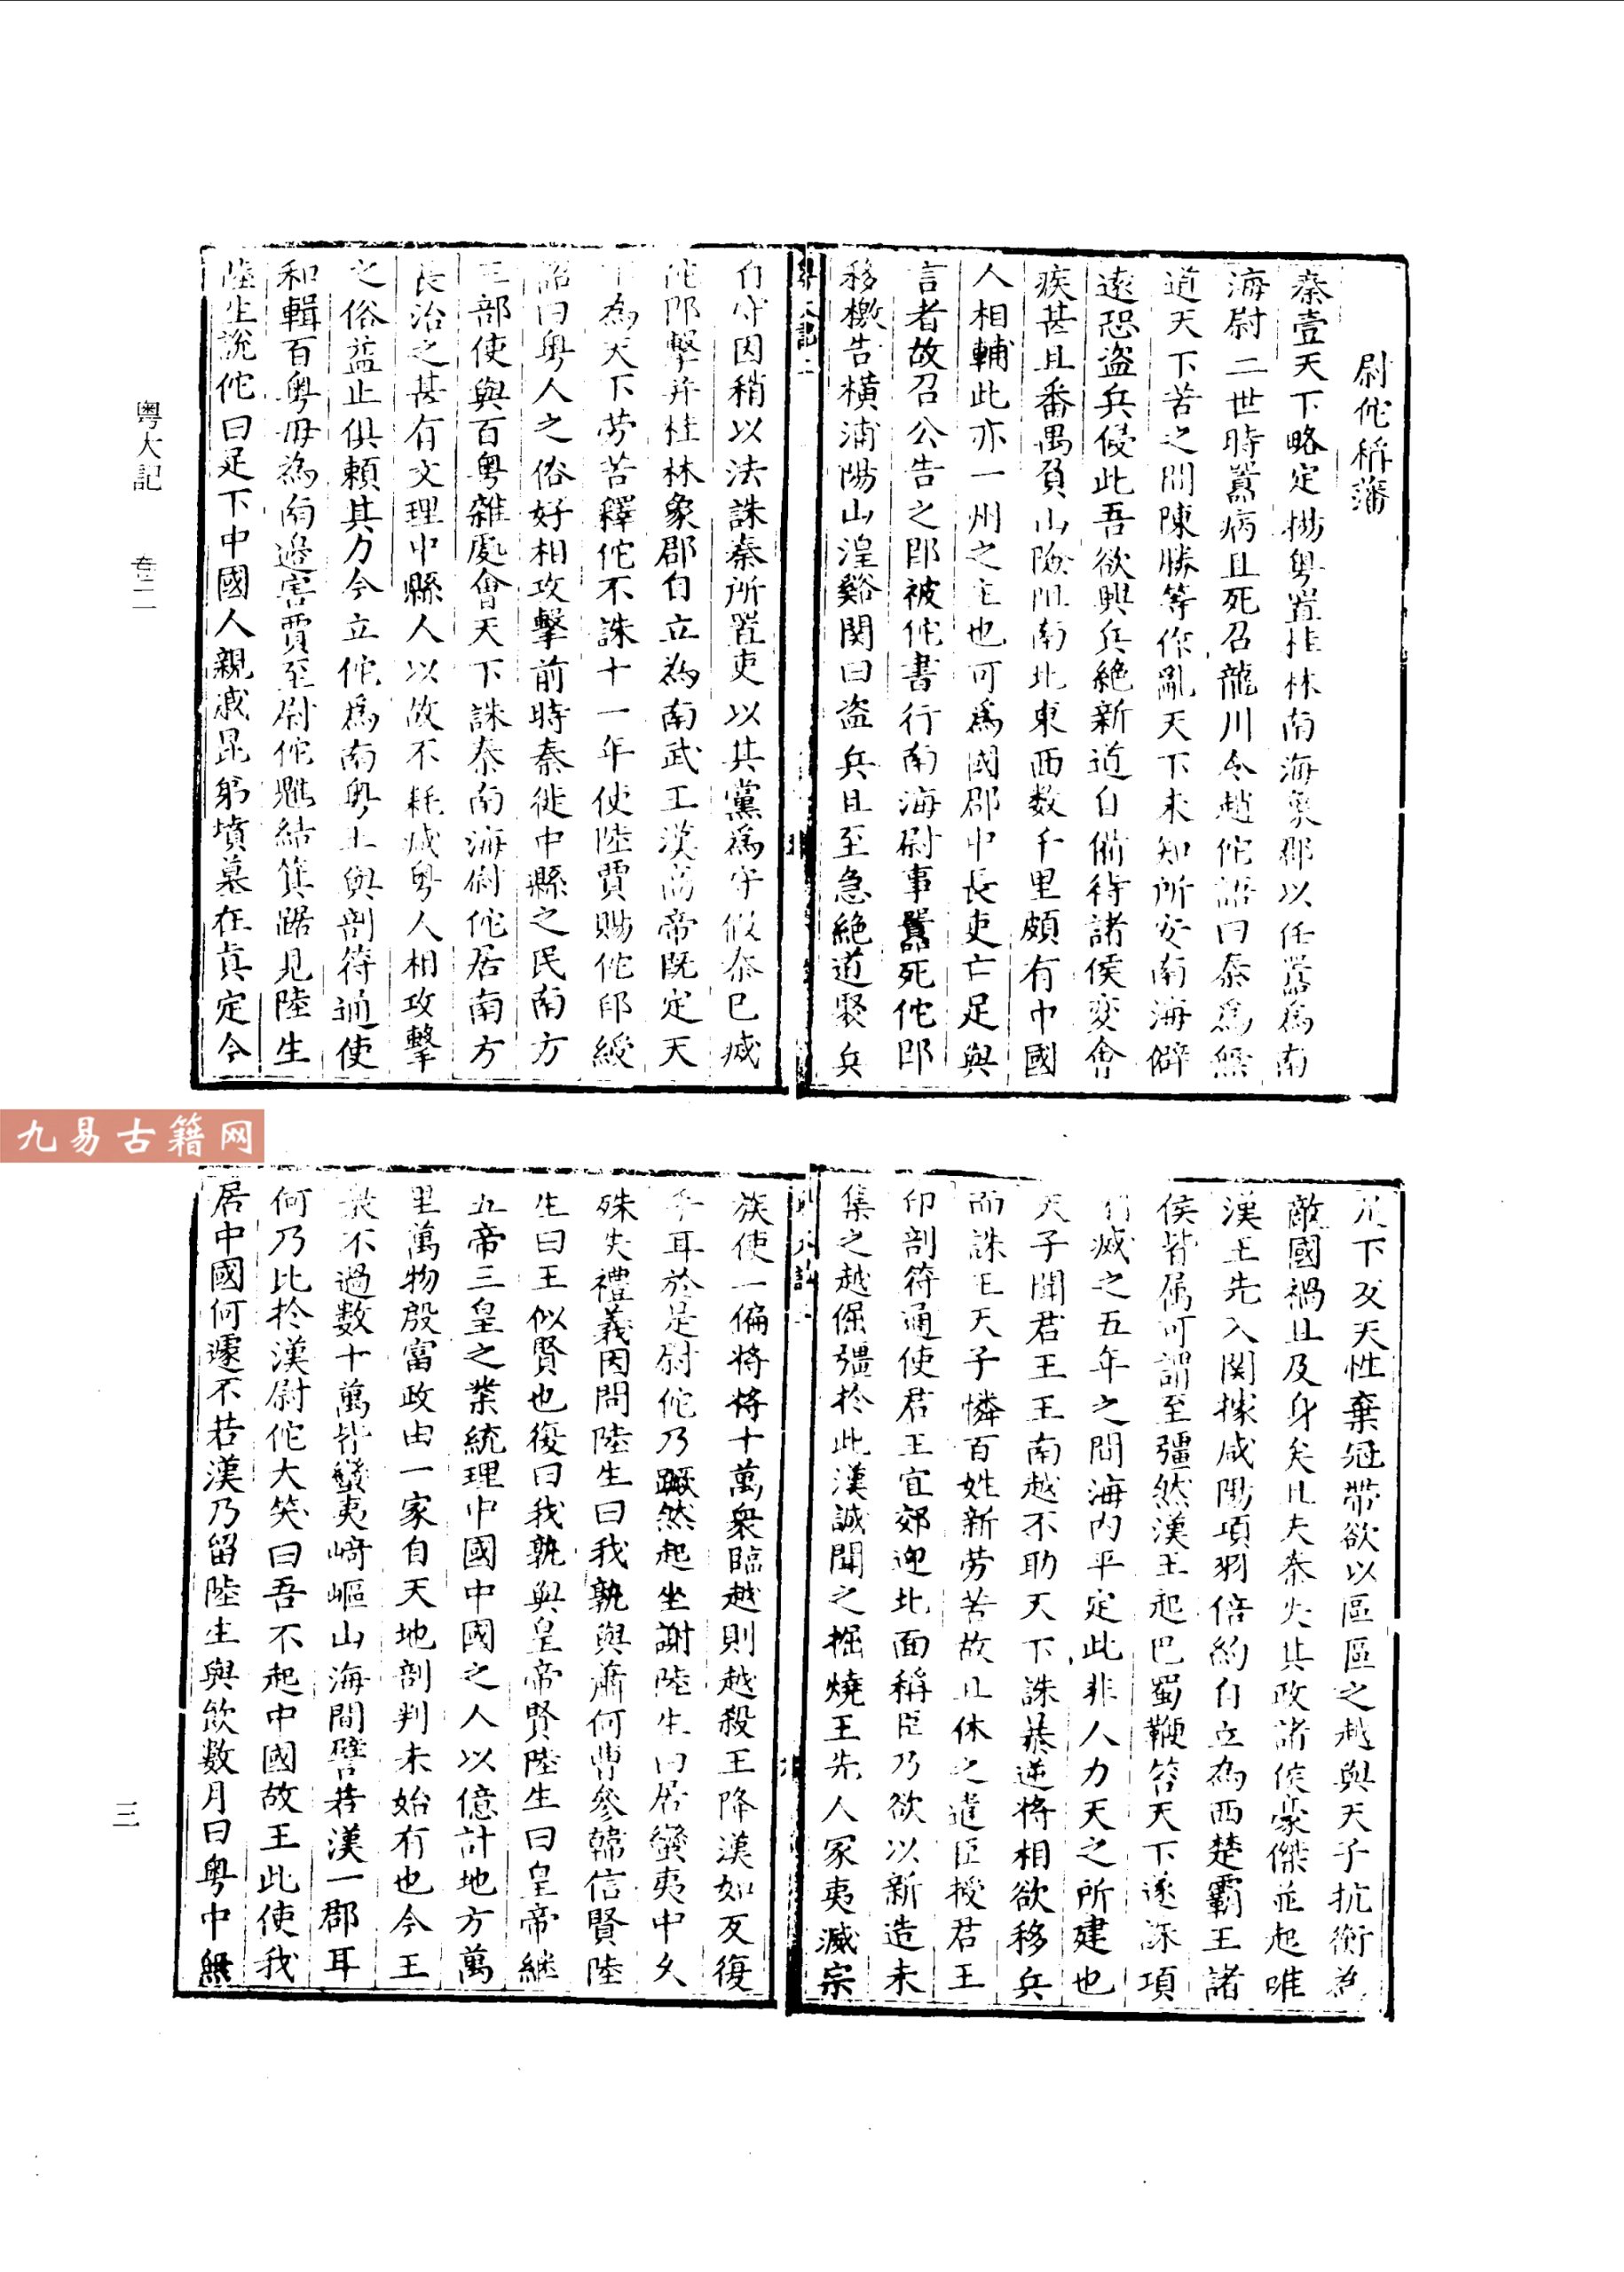 尉佗稱藩
秦壹天下略定揚粤置桂林南海象郡以任嚣為南
海尉二世時嚣病且死召龍川令趙佗語曰秦爲無
道天下苦之聞陳勝等作亂天下未知所安南海僻
遠恐盜兵侵此吾欲興兵絶新道自備待諸侯變會
疾甚且番禺負山險阻南北東西数千里頗有中國
人相輔此亦一州之主也可爲國郡中長吏亡足與
言者故召公告之即被佗書行南海尉事嚣死佗即
移檄告橫浦陽山湟谿関曰盜兵且至急絶道聚兵
自守因稍以法誅秦所置吏以其黨爲守假秦已滅
佗即擊并桂林象郡自立爲南武王漢高帝既定天
下為天下劳苦釋佗不誅十一年使陸賈賜佗印綬
詔曰粤人之俗好相攻擊前時秦徙中縣之民南方
三部使與百粤雜處會天下誅秦南海尉佗居南方
長治之甚有文理中縣人以故不耗減粤人相攻擊
之俗益止俱賴其力今立佗爲南粤王與剖符通使
和輯百粤毋為南邊害賈至尉佗魋結箕踞見陸生
陸生說佗曰足下中國人親戚昆弟墳墓在真定今
足下反天性棄冠帶欲以區區之越與天子抗衡為
敵國禍且及身矣且夫秦失其政諸侯豪傑並起唯
漢王先入関據咸陽項羽倍約自立為西楚霸王諸
侯皆属可謂至彊然漢王起巴蜀鞭笞天下遂誅項
羽滅之五年之間海内平定此非人力天之所建也
天子聞君王王南越不助天下誅暴逆将相欲移兵
而誅王天子憐百姓新劳苦故且休之遣臣授君王
印剖符通使君王宜郊迎北面稱臣乃欲以新造未
集之越倔彊於此漢誠聞之掘燒王先人冢夷滅宗
族使一偏将将十萬衆臨越則越殺王降漢如反復
手耳於是尉佗乃蹶然起坐謝陸生曰居蠻夷中久
殊失禮義因問陸生曰我孰與蕭何曹參韓信賢陸
生曰王似賢也復曰我孰與皇帝賢陸生曰皇帝継
五帝三皇之業統理中國中國之人以億計地方萬
里萬物殷富政由一家自天地剖判未始有也今王
衆不過数十萬皆蠻夷崎嶇山海間譬若漢一郡耳
何乃比於漢尉佗大笑曰吾不起中國故王此使我
居中國何遽不若漢乃留陸生與飲数月曰粤中無
粤大記
卷三
三
九易古籍网